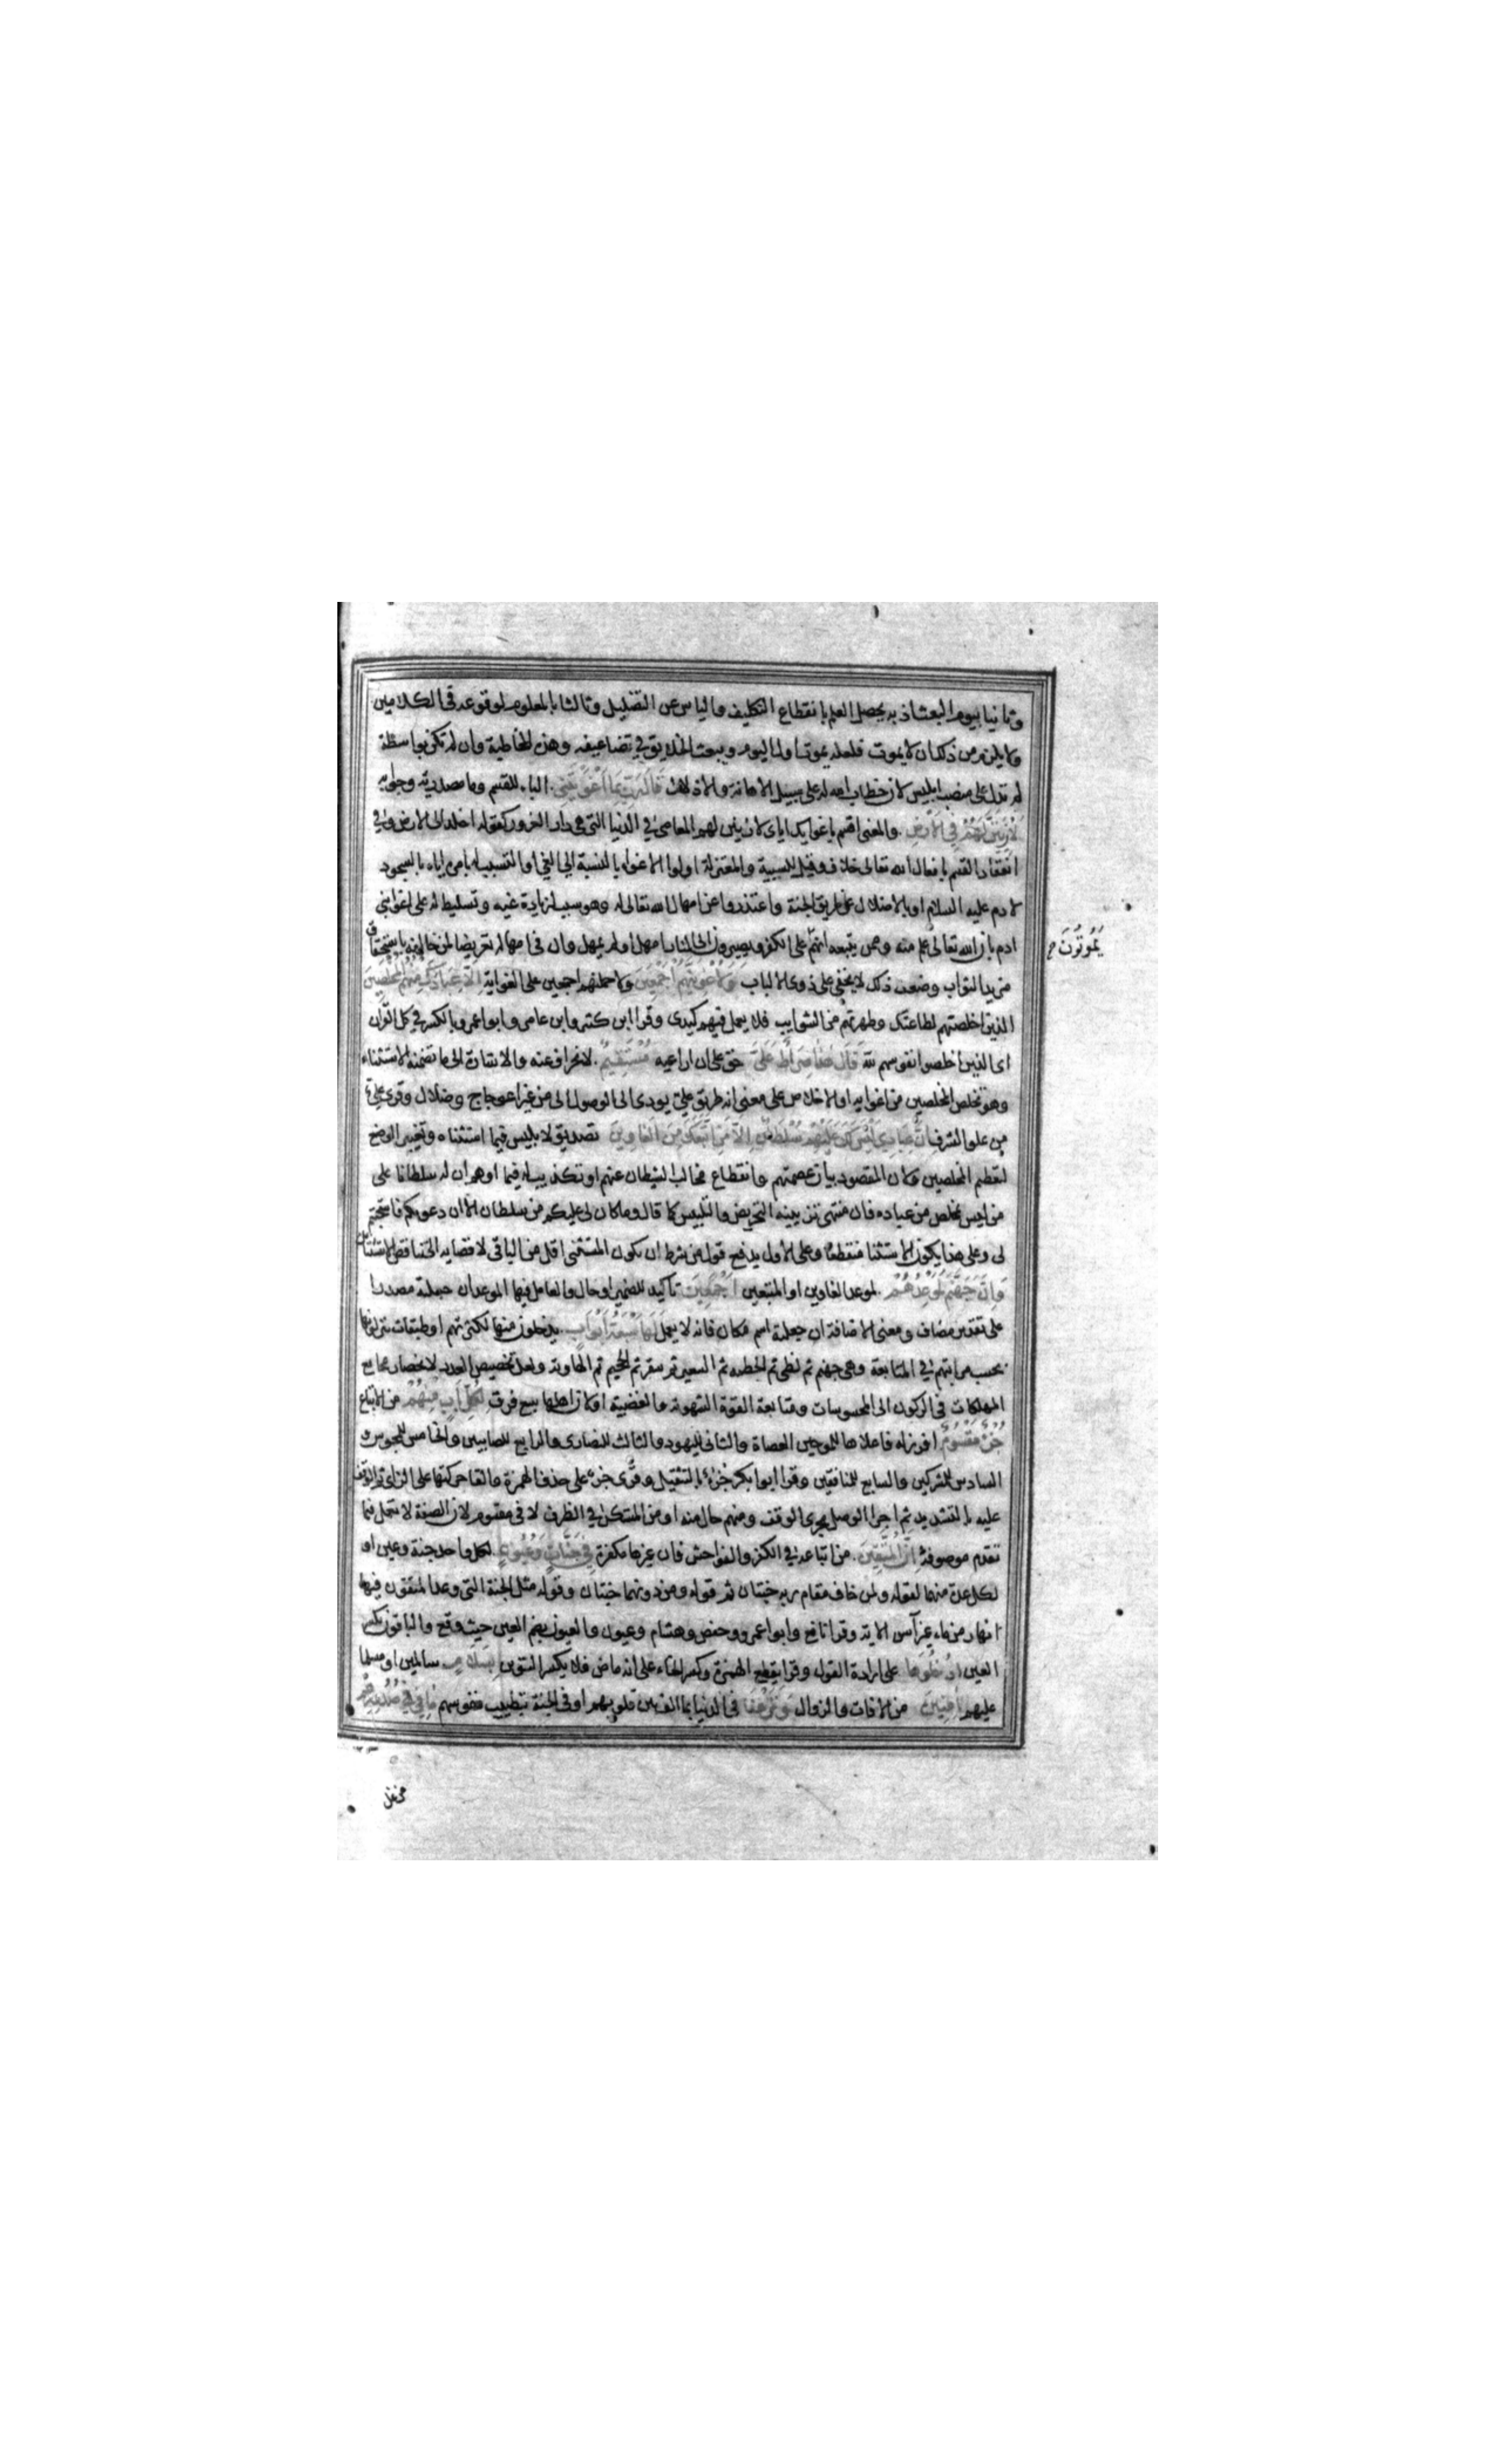 وثانيا بيوم البعث اذ به يحصل العلم بانقطاع التكليف والياس عن التضليل وثالثا بالمعلوم لوقوعه في الكلامين
ولا يلزم من ذلك ان لا يموت فلعله يموت اول اليوم ويبعث الخلايق في تضاعيفه وهذه المخاطبة وان لم تكن بواسطة
لم تدل على منصب ابليس لان خطاب الله له على سبيل الاهانة والاذلال قَالَ رَبِّ بِمَا اَغْوَيْتَنِي الباء للقسم وما مصدرية وجوابه
لَاُزَيِّنَنَّ لَهُمْ فِي الْاَرْضِ والمعنى اقسم باغوايك اياي لازينن لهم المعاصي في الدنيا التي هي دار الغرور كقوله اخلد الى الارض وفي
انعقاد القسم بافعال الله تعالى خلاف وقيل للسببية والمعتزلة اولوا الاغواء بالنسبة الى الغي او التسبب له بامره اياه بالسجود
لادم عليه السلام او بالاضلال عن طريق الجنة واعتذروا عن امهال الله تعالى له وهو سبب لزيادة غيه وتسليط له على اغواء بني
ادم بان الله تعالى علم منه وممن يتبعه انهم على الكفر ويصيرون الى النار امهل او لم يمهل وان في امهاله تعريضا لمن خالفه باستحقاق
يَمُوتُونَ
مزيد الثواب وضعف ذلك لا يخفى على ذوي الالباب وَلَاُغْوِيَنَّهُمْ اَجْمَعِينَ ولاحملنهم اجمعين على الغواية اِلَّا عِبَادَكَ مِنْهُمُ الْمُخْلَصِينَ
الذين اخلصتهم لطاعتك وطهرتهم من الشوايب فلا يعمل فيهم كيدي وقرا ابن كثير وابن عامر وابو عمرو بالكسر في كل القران
اى الذين اخلصوا نفوسهم لله قَالَ هَذَا صِرَاطٌ عَلَيَّ حق علي ان اراعيه مُسْتَقِيمٌ لا انحراف عنه والاشارة الى ما تضمنه الاستثناء
وهو تخلص المخلصين من اغوايه او الاخلاص على معنى انه طريق علي يودي الى الوصول الي من غير اعوجاج وضلال وقرئ علي
من علو الشرف اِنَّ عِبَادِي لَيْسَ لَكَ عَلَيْهِمْ سُلْطَانٌ اِلَّا مَنِ اتَّبَعَكَ مِنَ الْغَاوِينَ تصديق لابليس فيما استثناه وتغيير الوضع
لتعظيم المخلصين ولان المقصود بيان عصمتهم وانقطاع مخالب الشيطان عنهم او تكذيب له فيما اوهم ان له سلطانا على
من ليس بمخلص من عباده فان منتهى تزيينه التحريض والتلبيس كما قال وما كان لي عليكم من سلطان الا ان دعوتكم فاستجبتم
لي وعلى هذا يكون الاستثنا منقطعا وعلى الاول يدفع قول من شرط ان يكون المستثنى اقل من الباقي لافضايه الى تناقض الاستثنائين
وَاِنَّ جَهَنَّمَ لَمَوْعِدُهُمْ لموعد الغاوين او المتبعين اَجْمَعِينَ تاكيد للضمير او حال والعامل فيها الموعد ان جعلته مصدرا
على تقدير مضاف ومعنى الاضافة ان جعلته اسم مكان فانه لا يعمل لَهَا سَبْعَةُ اَبْوَابٍ يدخلون منها لكثرتهم او طبقات ينزلونها
بحسب مراتبهم في المتابعة وهي جهنم ثم لظى ثم الحطمه ثم السعير ثم سقر ثم الجحيم ثم الهاوية ولعل تخصيص العدد لانحصار مجامع
المهلكات في الركون الى المحسوسات ومتابعة القوة الشهوية والغضبية او لان اهلها سبع فرق لِكُلِّ بَابٍ مِنْهُمْ من الاتباع
جُزْءٌ مَقْسُومٌ افرز له فاعلاها للموحدين العصاة والثاني لليهود والثالث للنصارى والرابع للصابيين والخامس للمجوس و
السادس للمشركين والسابع للمنافقين وقرا ابو بكر جزء بالتثقيل وقرئ جز على حذف الهمزة والقا حركتها على الزاي ثم الوقف
عليه بالتشديد ثم اجرا الوصل مجرى الوقف ومنهم حال منه او من المستكن في الظرف لا في مقسوم لان الصفة لا تعمل فيما
تقدم موصوفه اِنَّ الْمُتَّقِينَ من اتباعه في الكفر والفواحش فان غيرها مكفرة فِي جَنَّاتٍ وَعُيُونٍ لكل واحد جنة وعين او
لكل عدة منهما لقوله ولمن خاف مقام ربه جنتان ثم قوله ومن دونهما جنتان وقوله مثل الجنة التي وعد المتقون فيها
انهار من ماء غير آسن الاية وقرا نافع وابو عمرو وحفص وهشام وعيون والعيون بضم العين حيث وقع والباقون بكسر
العين اُدْخُلُوهَا على ارادة القول وقرا بقطع الهمزة وكسر الخاء على انه ماض فلا يكسر التنوين بِسَلَامٍ سالمين او مسلما
عليهم آمِنِينَ من الافات والزوال وَنَزَعْنَا في الدنيا بما الف بين قلوبهم او في الجنة بتطييب نفوسهم مَا فِي صُدُورِهِمْ
من غل